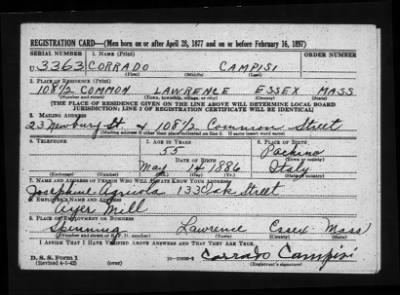 REGISTRATION CARD—(Men born on or after April 28, 1877 and on or before February 16, 1897)
SERIAL NUMBER 1. NAME (Print) ORDER NUMBER
U 3363 CORRADO CAMPISI
(First) (Middle) (Last)
2. PLACE OF RESIDENCE (Print)
108½ COMMON LAWRENCE ESSEX MASS
(Number and street) (Town, township, village, or city) (County) (State)
(THE PLACE OF RESIDENCE GIVEN ON THE LINE ABOVE WILL DETERMINE LOCAL BOARD
JURISDICTION; LINE 2 OF REGISTRATION CERTIFICATE WILL BE IDENTICAL)
3. MAILING ADDRESS
23 Newbury St 108½ Common Street
(Mailing address if other than place indicated on line 2. If same insert word same)
4. TELEPHONE 5. AGE IN YEARS 6. PLACE OF BIRTH
55 Pachino
DATE OF BIRTH (Town or county)
May 14 1886 Italy
(Exchange) (Number) (Mo.) (Day) (Yr.) (State or country)
7. NAME AND ADDRESS OF PERSON WHO WILL ALWAYS KNOW YOUR ADDRESS
Josephine Agricola 133 Oak Street
8. EMPLOYER'S NAME AND ADDRESS
Ayer Mill
9. PLACE OF EMPLOYMENT OR BUSINESS
Spinning Lawrence Essex Mass
(Number and street or R. F. D. number) (Town) (County) (State)
I AFFIRM THAT I HAVE VERIFIED ABOVE ANSWERS AND THAT THEY ARE TRUE.
D. S. S. Form 1
(Revised 4-1-42) (over)
Corrado Campisi
(Registrant's signature)